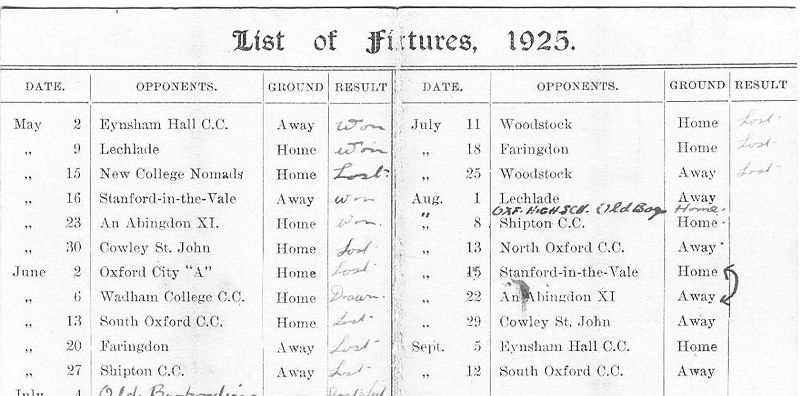 List of Fixtures, 1925.
DATE. OPPONENTS. GROUND RESULT
May 2 Eynsham Hall C.C. Away Won
„ 9 Lechlade Home Won
„ 15 New College Nomads Home Lost
„ 16 Stanford-in-the-Vale Away Won
„ 23 An Abingdon XI. Home Won.
„ 30 Cowley St. John Home Lost
June 2 Oxford City "A" Home Lost
„ 6 Wadham College C.C. Home Drawn
„ 13 South Oxford C.C. Home Lost
„ 20 Faringdon Away Lost
„ 27 Shipton C.C. Away Lost
July 4 Old
DATE. OPPONENTS. GROUND RESULT
July 11 Woodstock Home Lost
„ 18 Faringdon Home Lost
„ 25 Woodstock Away Lost
Aug. 1 Lechlade Away
" OXF. HIGH SCH. Old Boys Home.
„ 8 Shipton C.C. Home
„ 13 North Oxford C.C. Away
„ 15 Stanford-in-the-Vale Home
„ 22 An Abingdon XI Away
„ 29 Cowley St. John Away
Sept. 5 Eynsham Hall C.C. Home
„ 12 South Oxford C.C. Away